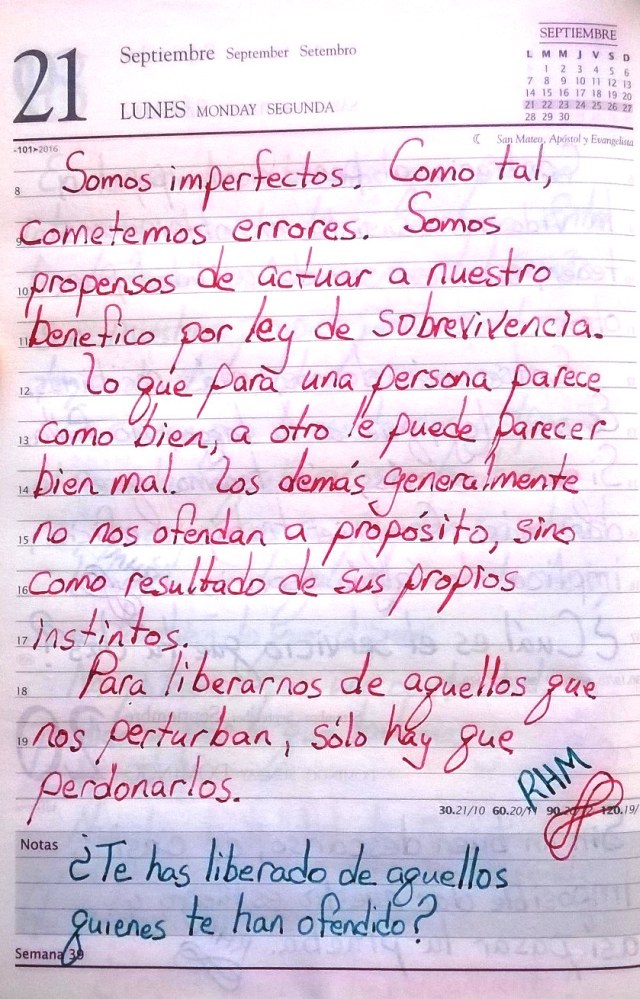 21
Septiembre September Setembro
LUNES MONDAY SEGUNDA
SEPTIEMBRE
L M M J V S D
1 2 3 4 5 6
7 8 9 10 11 12 13
14 15 16 17 18 19 20
21 22 23 24 25 26 27
28 29 30
-101▸2016
☾ San Mateo, Apóstol y Evangelista
8 Somos imperfectos. Como tal,
9 cometemos errores. Somos
10 propensos de actuar a nuestro
11 benefico por ley de sobrevivencia.
12 Lo que para una persona parece
13 como bien, a otro le puede parecer
14 bien mal. Los demás generalmente
15 no nos ofendan a propósito, sino
16 como resultado de sus propios
17 instintos.
18 Para liberarnos de aquellos que
19 nos perturban, sólo hay que
perdonarlos.
RHM
30.21/10 60.20/11 90. 120.19/
Notas
¿Te has liberado de aquellos
quienes te han ofendido?
Semana 39